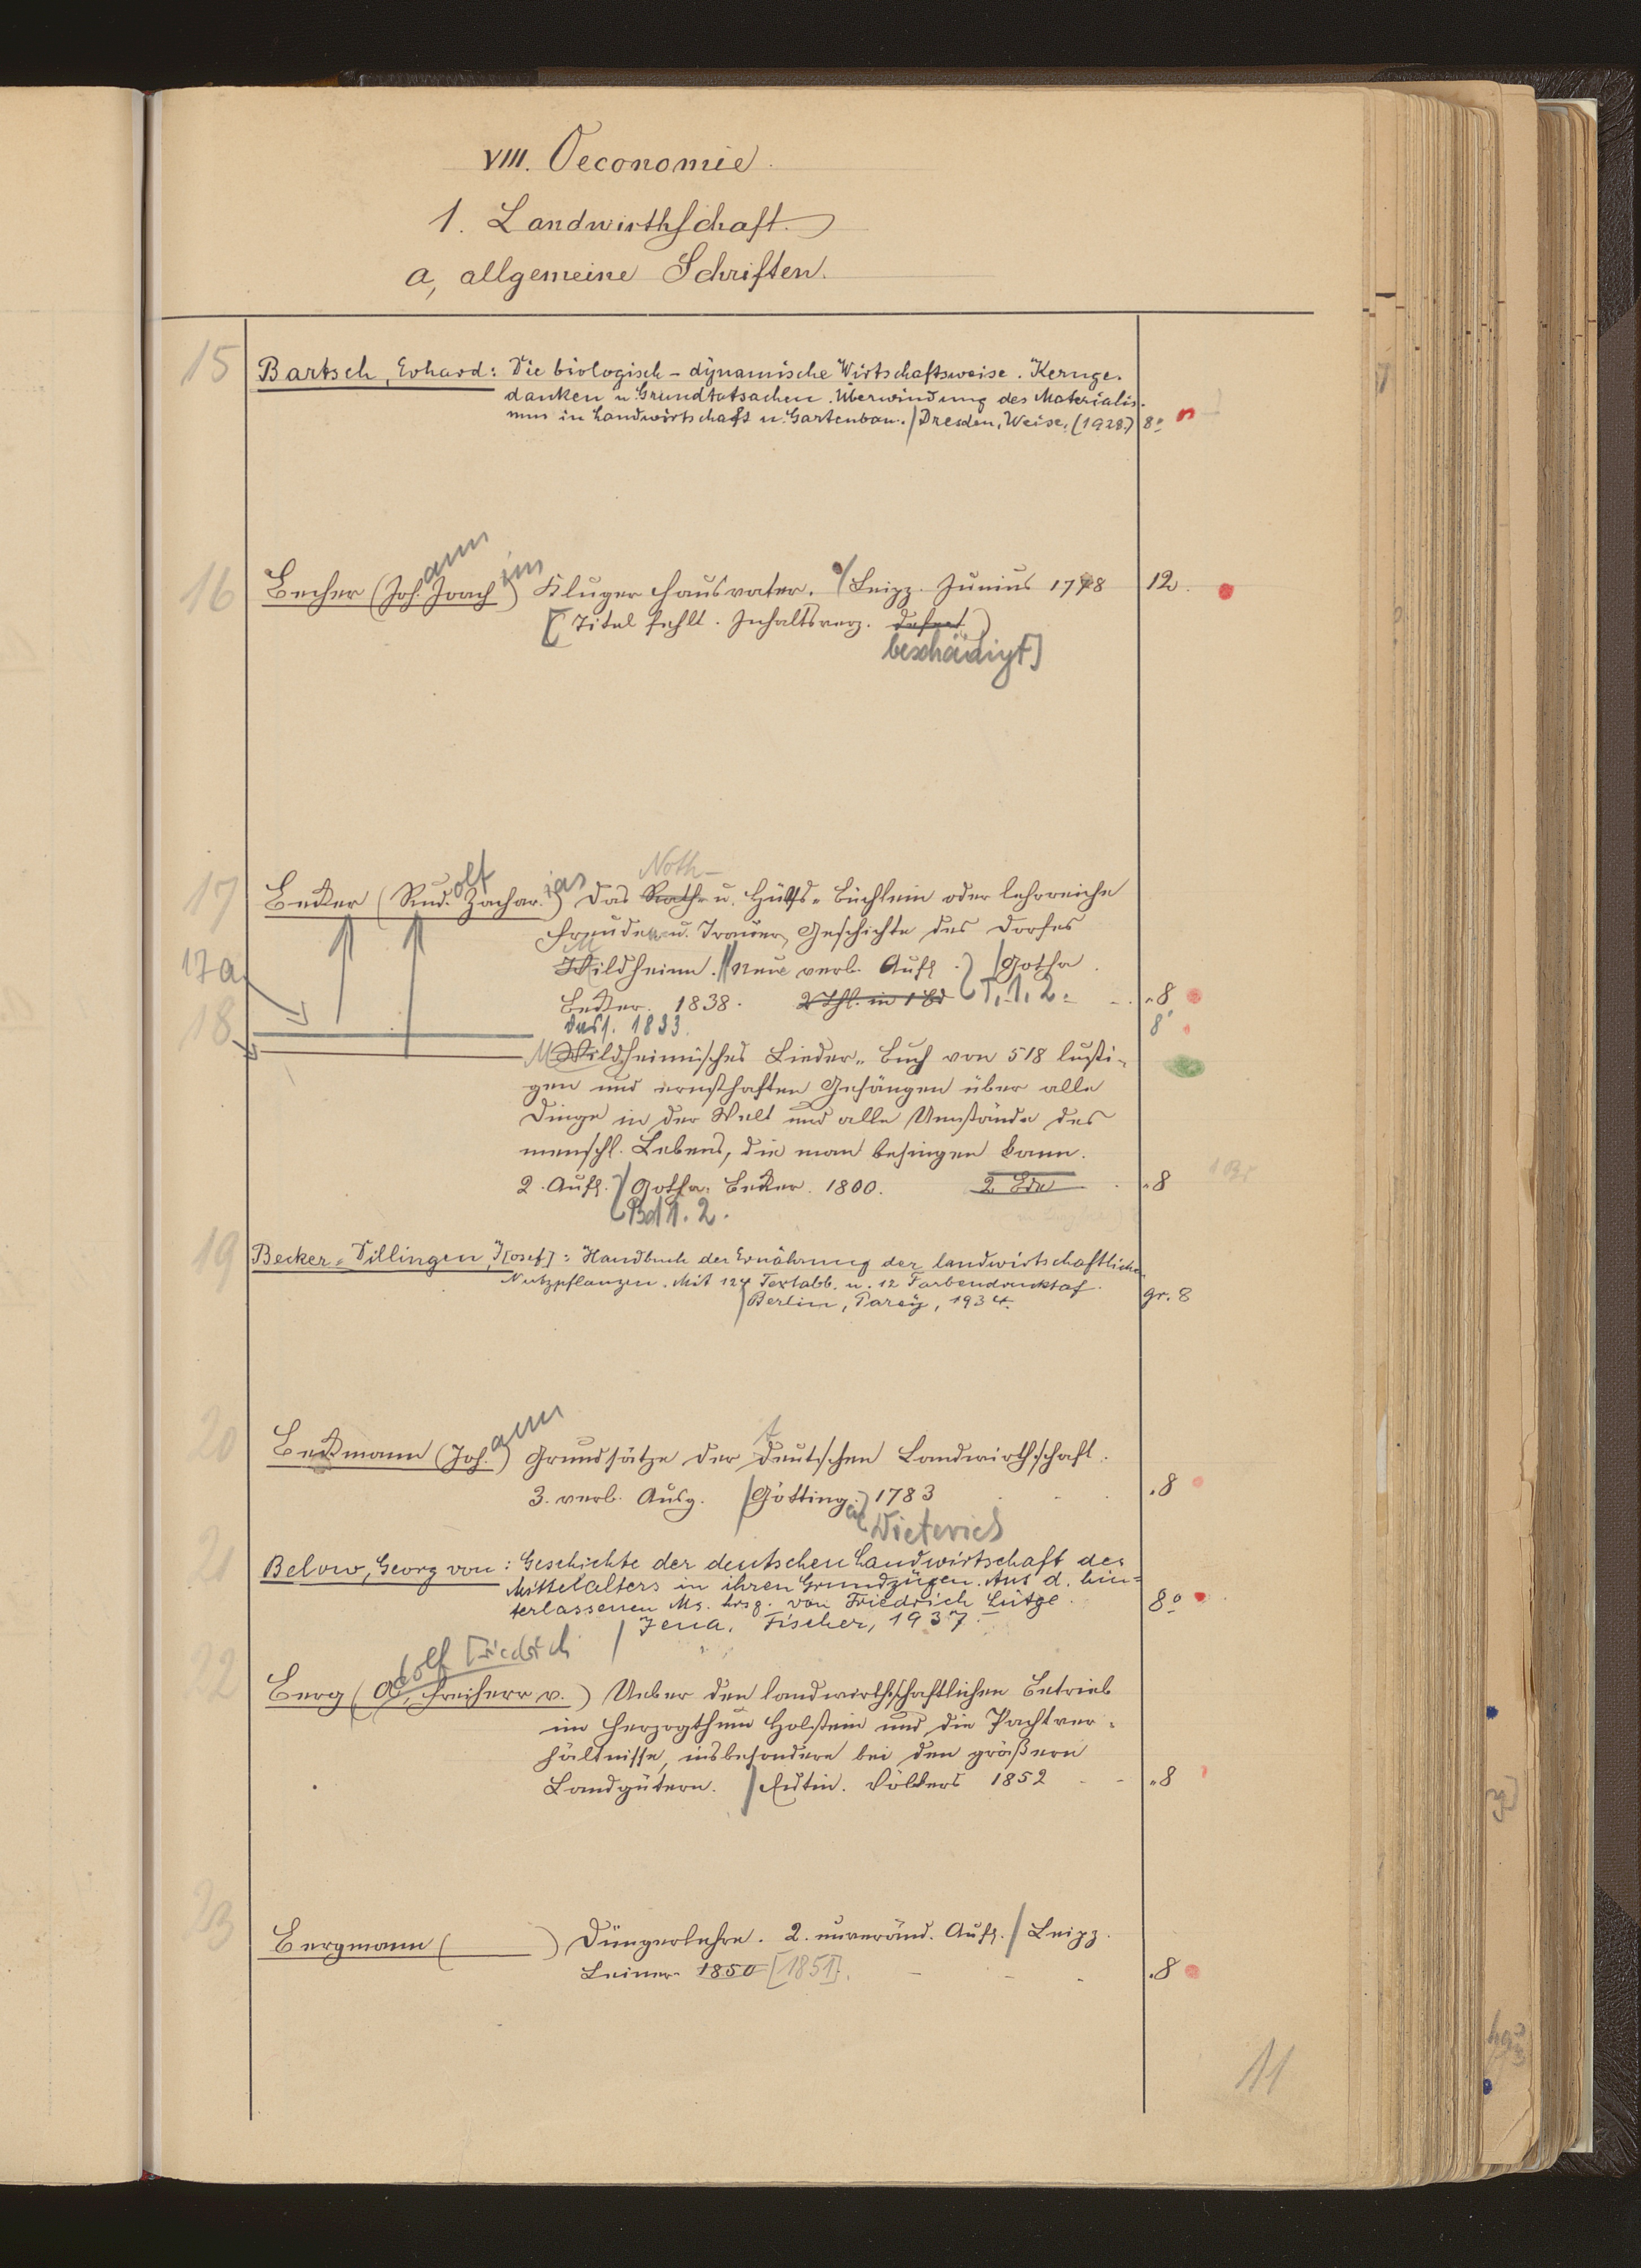 VIII. Oeconomie.
1. Landwirthschaft.
a, allgemeine Schriften.
15 Bartsch, Erhard: Die biologisch-dynamische Wirtschaftsweise. Kernge-
danken u. Grundtatsachen. Überwindung des Materialis-
mus in Landwirtschaft u. Gartenbau. / Dresden, Weise, (1928.) 8°
16 Becher (Joh.ann Joachim) Kluger Hausvater. / Leipz. Junius 1778 12.
[Titel fehlt. Inhaltsverz. defect)
beschädigt]
Noth-
17 Becker (Rud.olf Zachar.ias) Das Rath- u. Hülfs-Büchlein oder lehrreiche
Freuden- u. Trauer-Geschichte des Dorfes
17a Mildheim. // Neue verb. Aufl. / Gotha.
Becker. 1838. 2 Thl. in 1 Bd T. 1. 2. 8
Dass. 1833. 8°
18 Mildheimisches Lieder-Buch von 518 lusti-
gen und ernsthaften Gesängen über alle
Dinge in der Welt und alle Umstände des
menschl. Lebens, die man besingen kann.
2. Aufl. / Gotha. Becker. 1800. 2 Bde 8
Bd 1. 2.
19 Becker-Dillingen, J[osef]: Handbuch der Ernährung der landwirtschaftlichen
Nutzpflanzen. Mit 124 Textabb. u. 12 Farbendrucktaf.
/ Berlin, Parey, 1934. gr. 8
20 Beckmann (Joh.ann) Grundsätze der teutschen Landwirthschaft.
3. verb. Ausg. / Götting. 1783 8
Dieterich
21 Below, Georg von: Geschichte der deutschen Landwirtschaft des
Mittelalters in ihren Grundzügen. Aus d. hin-
terlassenen Ms. hrsg. von Friedrich Lütge. 8°
/ Jena, Fischer, 1937.
dolf Friedrich
22 Berg (A, Freiherr v.) Ueber den landwirthschaftlichen Betrieb
im Herzogthum Holstein und die Pachtver-
hältnisse, insbesondere bei den größern
Landgütern. / Eutin. Völckers 1852 8
23 Bergmann ( ) Düngerlehre. 2. unveränd. Aufl. / Leipz.
Leiner 1850 [1851]. 8
11